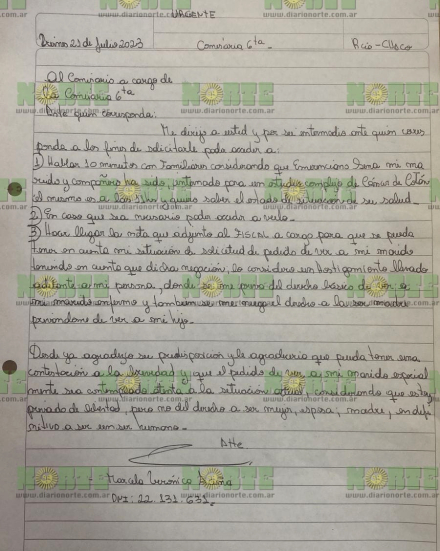 URGENTE
Comisaria 6ta - Rcia - Chaco
Al Comisario a cargo de
la Comisaria 6ta
Ante quien corresponda:
Me dirijo a usted y por su intermedio ante quien corres
ponda a los fines de solicitarle pueda acceder a:
1) Hablar 10 minutos con Familiares considerando que Emerenciano Sena mi ma
rido y compañero ha sido internado para un estudio complejo de Cáncer de Colón
el mismo es a las 11hs y quiero saber el estado de situación de su salud.
2) En caso que sea necesario poder acceder a verlo.
3) Hacer llegar la nota que adjunto al FISCAL a cargo para que se pueda
tener en cuenta mi situación de solicitud de pedido de ver a mi marido
teniendo en cuenta que dicha negación, lo considero un hostigamiento llevado
adelante a mi persona, donde se me priva del derecho básico de ver a
mi marido enfermo y también se me niega el derecho a la ser madre
privandome de ver a mi hijo.
Desde ya agradezco su predisposición y le agradecería que pueda tener una
contestación a la brevedad y que el pedido de ver a mi marido especial
mente sea contemplado atento a la situación actual, considerando que estoy
privada de libertad, pero no del derecho a ser mujer, esposa, madre, en defi
nitiva a ser un ser humano.-
Atte
Marcela Verónica Acuña
DNI: 22.131.631.
NORTE
www.diarionorte.com.ar